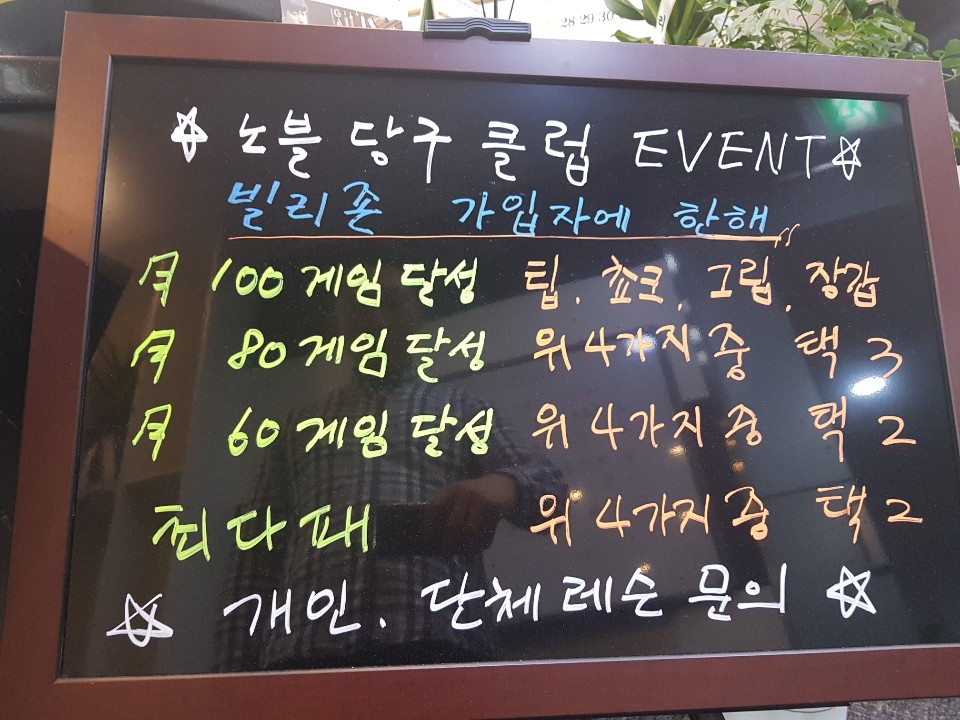 28 29 30
☆ 노블 당구 클럽 EVENT ☆
빌리존 가입자에 한해
月 100게임 달성 팁. 쵸크. 그립. 장갑
月 80게임 달성 위 4가지 중 택 3
月 60게임 달성 위 4가지 중 택 2
최다패 위 4가지 중 택 2
☆ 개인. 단체 레슨 문의 ☆